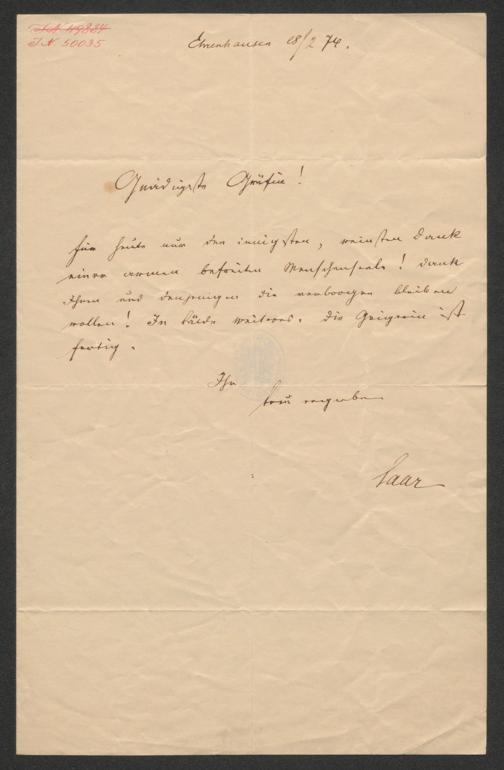 I.N. 49884
I.N. 50035
Ehrenhausen 28/2 74.
Gnädigste Gräfin!
Für heute nur den innigsten, reinsten Dank
einer armen befreiten Menschenseele! Dank
Ihnen und denjenigen die verborgen bleiben
wollen! In Bälde weiteres. Die Geigerin ist
fertig.
Ihr
treu ergebener
Saar